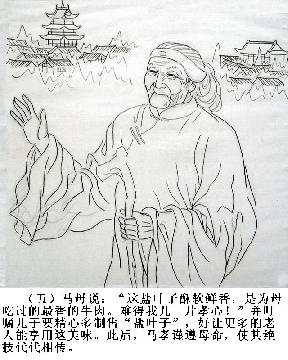 (五)马母说:“这盐叶子酥软鲜香,是为母
吃过的最香的牛肉。难得我儿一片孝心!”并叮
嘱儿子要精心多制售“盐叶子”,好让更多的老
人能享用这美味。此后,马孝谨遵母命,使其绝
技代代相传。